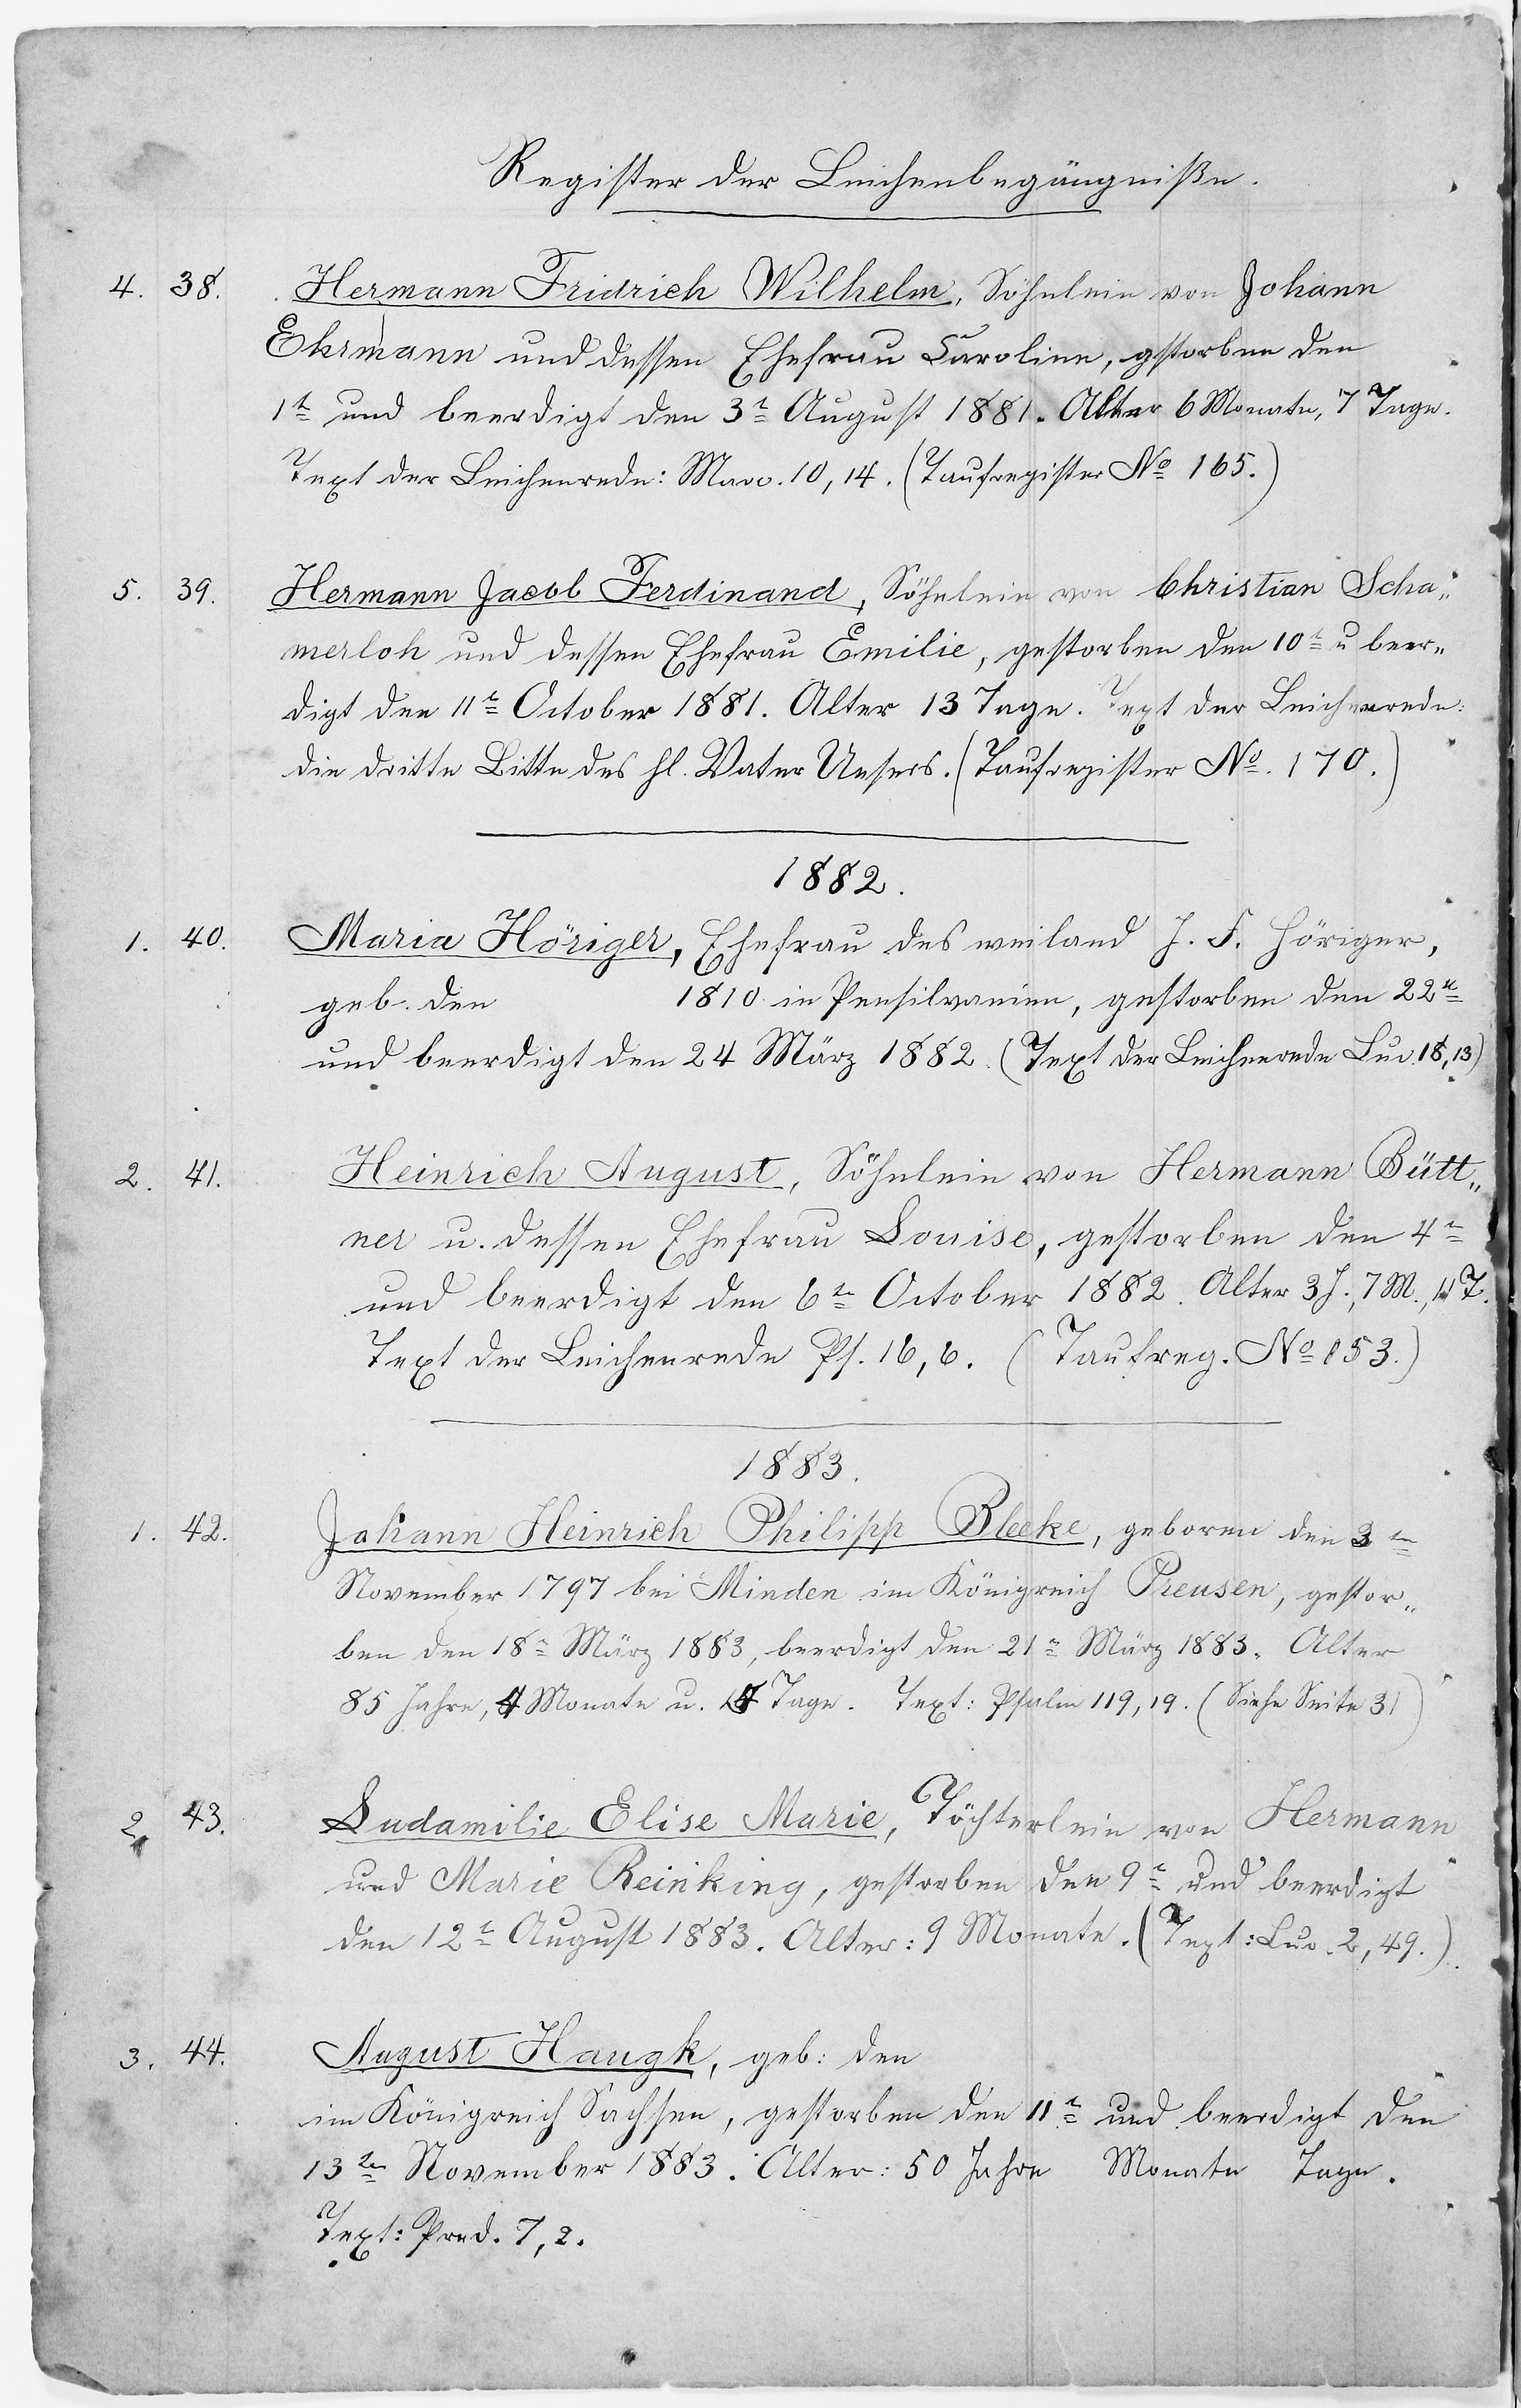 Register der Leichenbegängniße.
4. 38. Hermann Fridrich Wilhelm, Söhnlein von Johann
Ekrmann und dessen Ehefrau Caroline, gstorben den
1t und beerdigt den 3t August 1881. Alter 6 Monate, 7 Tage.
Text der Leichenrede: Marc. 10, 14. (Taufregister No 165.)
5. 39. Hermann Jacob Ferdinand, Söhnlein von Christian Scha„
merloh und dessen Ehefrau Emilie, gestorben den 10t u beer„
digt den 11t October 1881. Alter 13 Tage. Text der Leichenrede:
die dritte Bitte des hl. Vater Unsers. (Taufregister No. 170.)
1882.
1. 40. Maria Höriger, Ehefrau des weiland J. F. Höriger,
geb. den 1810 in Pensilvanien, gestorben den 22t
und beerdigt den 24 März 1882. (Text der Leichenrede Luc. 18, 13)
2. 41. Heinrich August, Söhnlein von Hermann Bütt„
ner u. dessen Ehefrau Louise, gestorben den 4t
und beerdigt den 6t October 1882. Alter 3 J., 7 M., 11 T.
Text der Leichenrede Ps. 16, 6. (Taufreg. No 153.)
1883.
1. 42. Johann Heinrich Philipp Bleeke, geboren den 3ten
November 1797 bei Minden im Königreich Preusen, gestor„
ben den 18t März 1883, beerdigt den 21t März 1883. Alter
85 Jahre, 4 Monate u. Tage. Text: Psalm 119, 19. (Siehe Seite 31)
2. 43. Ludamilie Elise Marie, Töchterlein von Hermann
und Marie Reinking, gestorben den 9t und beerdigt
den 12t August 1883. Alter: 9 Monate. (Text: Luc. 2, 49.).
3. 44. August Haugk, geb: den
im Königreich Sachsen, gestorben den 11t und beerdigt den
13ten November 1883. Alter: 50 Jahre Monate Tage.
Text: Pred. 7, 2.